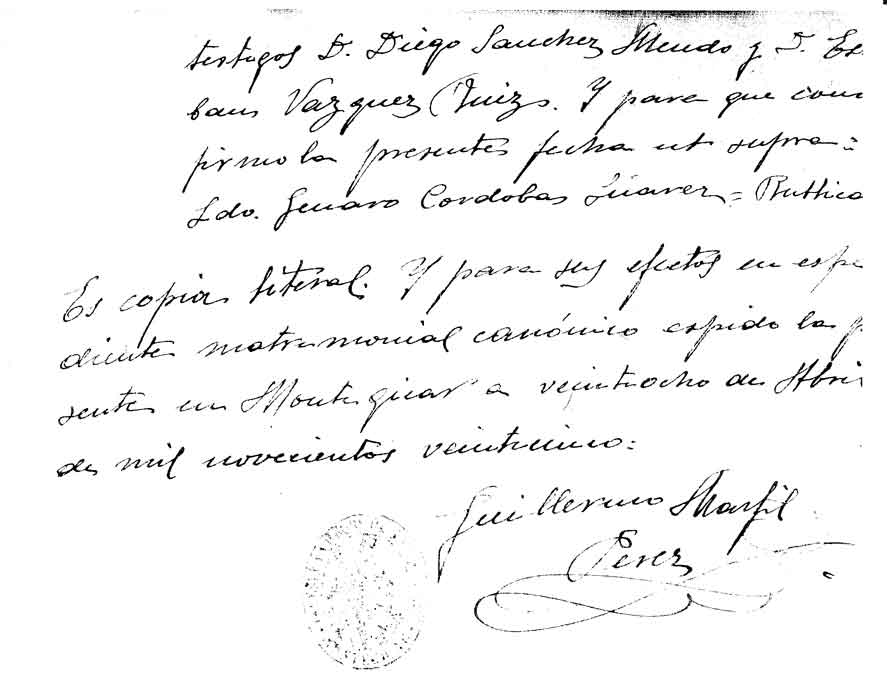 testigos D. Diego Sanchez Mendo y D. Es
bans Vazquez Ruizs. Y para que cons
firmo la presentes fecha ut supra =
Ldo. Genaro Cordobas Súarez = Rubrica
Es copia literal. Y para sus efectos en espe
diente matrimonial canónico espido la p
sente en Montegicar a veintiocho de Abri
de mil novecientos veinticinco =
Guillermo Marfil
Perez